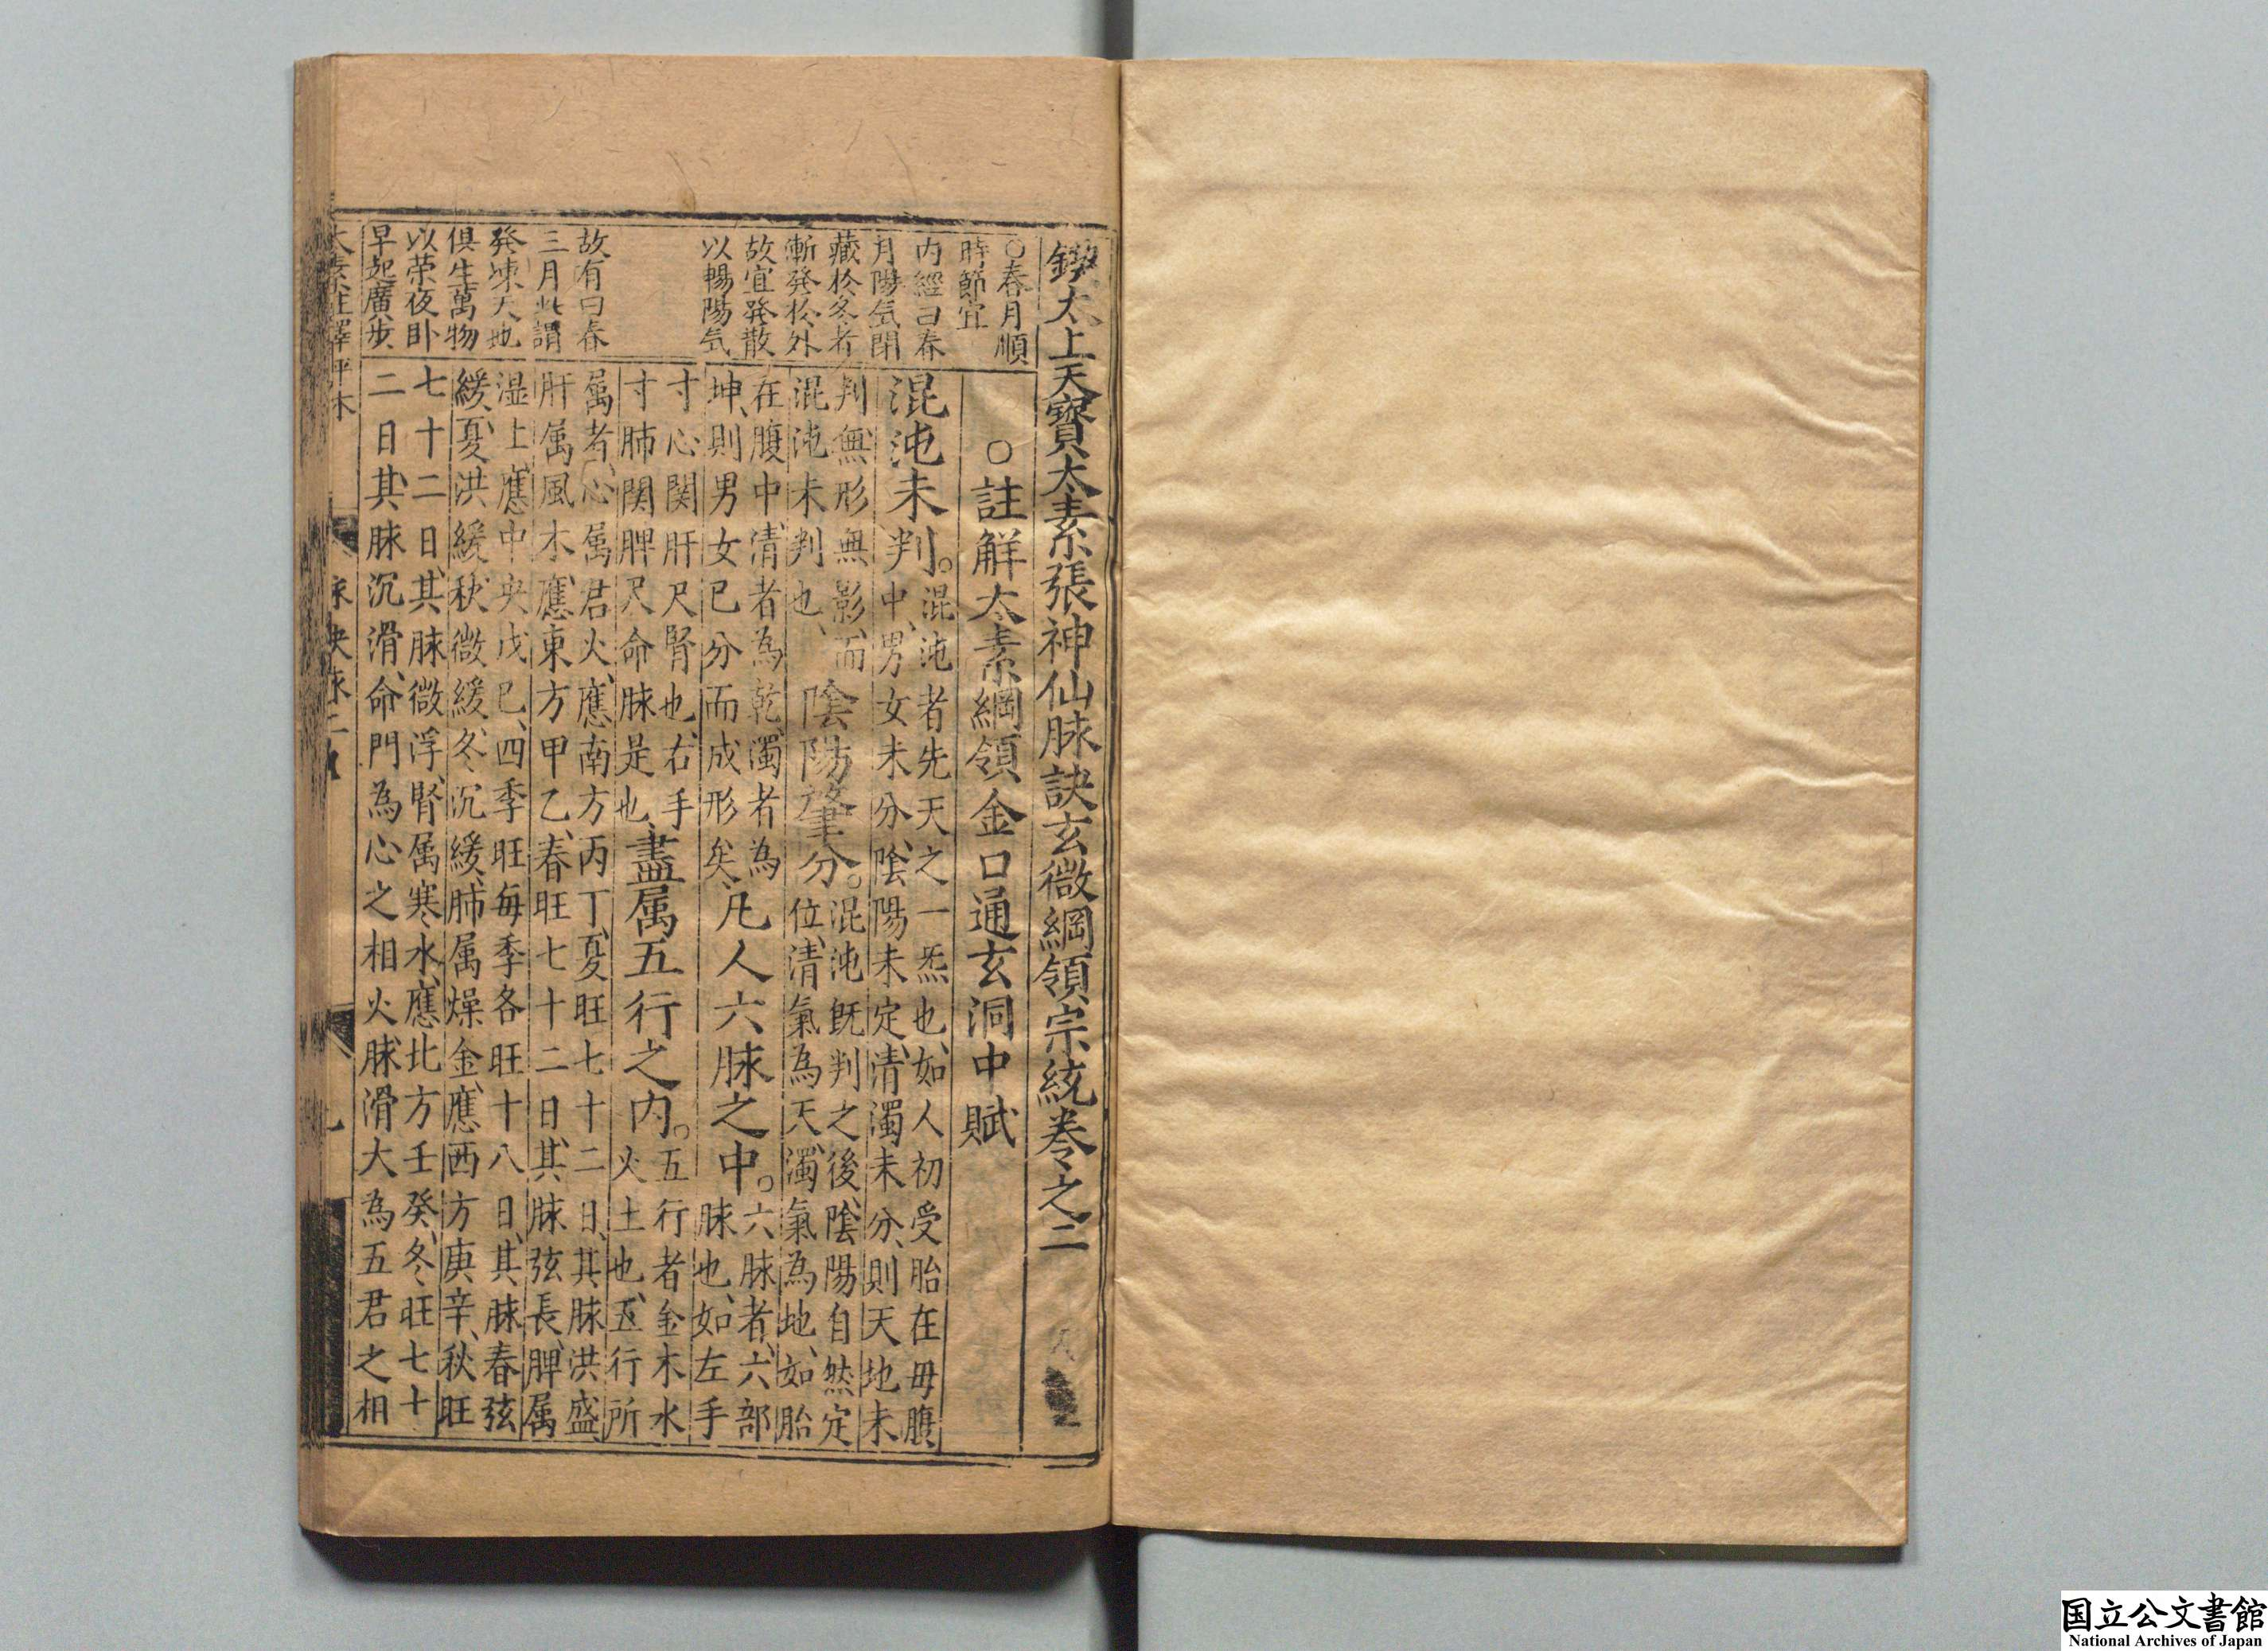 鍥太上天寶太素張神仙脉訣玄微綱領宗統卷之二
○春月順
時節宜
内經曰春
月陽氣閉
藏於冬者
漸發於外
故宜発散
以暢陽氣
故有曰春
三月此謂
發陳天地
俱生萬物
以荣夜卧
早起廣步
○註解太素綱領金口通玄洞中賦
混沌未判。混沌者先天之一炁也、如人初受胎在母腹
中、男女未分、陰陽未定、清濁未分、則天地未
判、無形無影、而
混沌未判也、
陰陽肇分。混沌既判之後、陰陽自然定
位、清氣為天、濁氣為地、如胎
在腹中、清者為乾、濁者為
坤、則男女已分而成形矣、
凡人六脉之中。六脉者、六部
脉也、如左手
寸心関肝尺腎也、右手
寸肺関脾尺命脉是也、
盡属五行之内。五行者金木水
火土也、五行所
属者、心属君火、應南方丙丁、夏旺七十二日、其脉洪盛、
肝属風木、應東方甲乙、春旺七十二日、其脉弦長、脾属
湿土、應中央戊己、四季旺每季各旺十八日、其脉春弦
緩、夏洪緩、秋微緩、冬沉緩、肺属燥金、應西方庚辛、秋旺
七十二日、其脉微浮、腎属寒水、應北方壬癸、冬旺七十
二日、其脉沉滑、命門為心之相火、脉滑大為五君之相
太素註釋評本
国立公文書館
National Archives of Japan